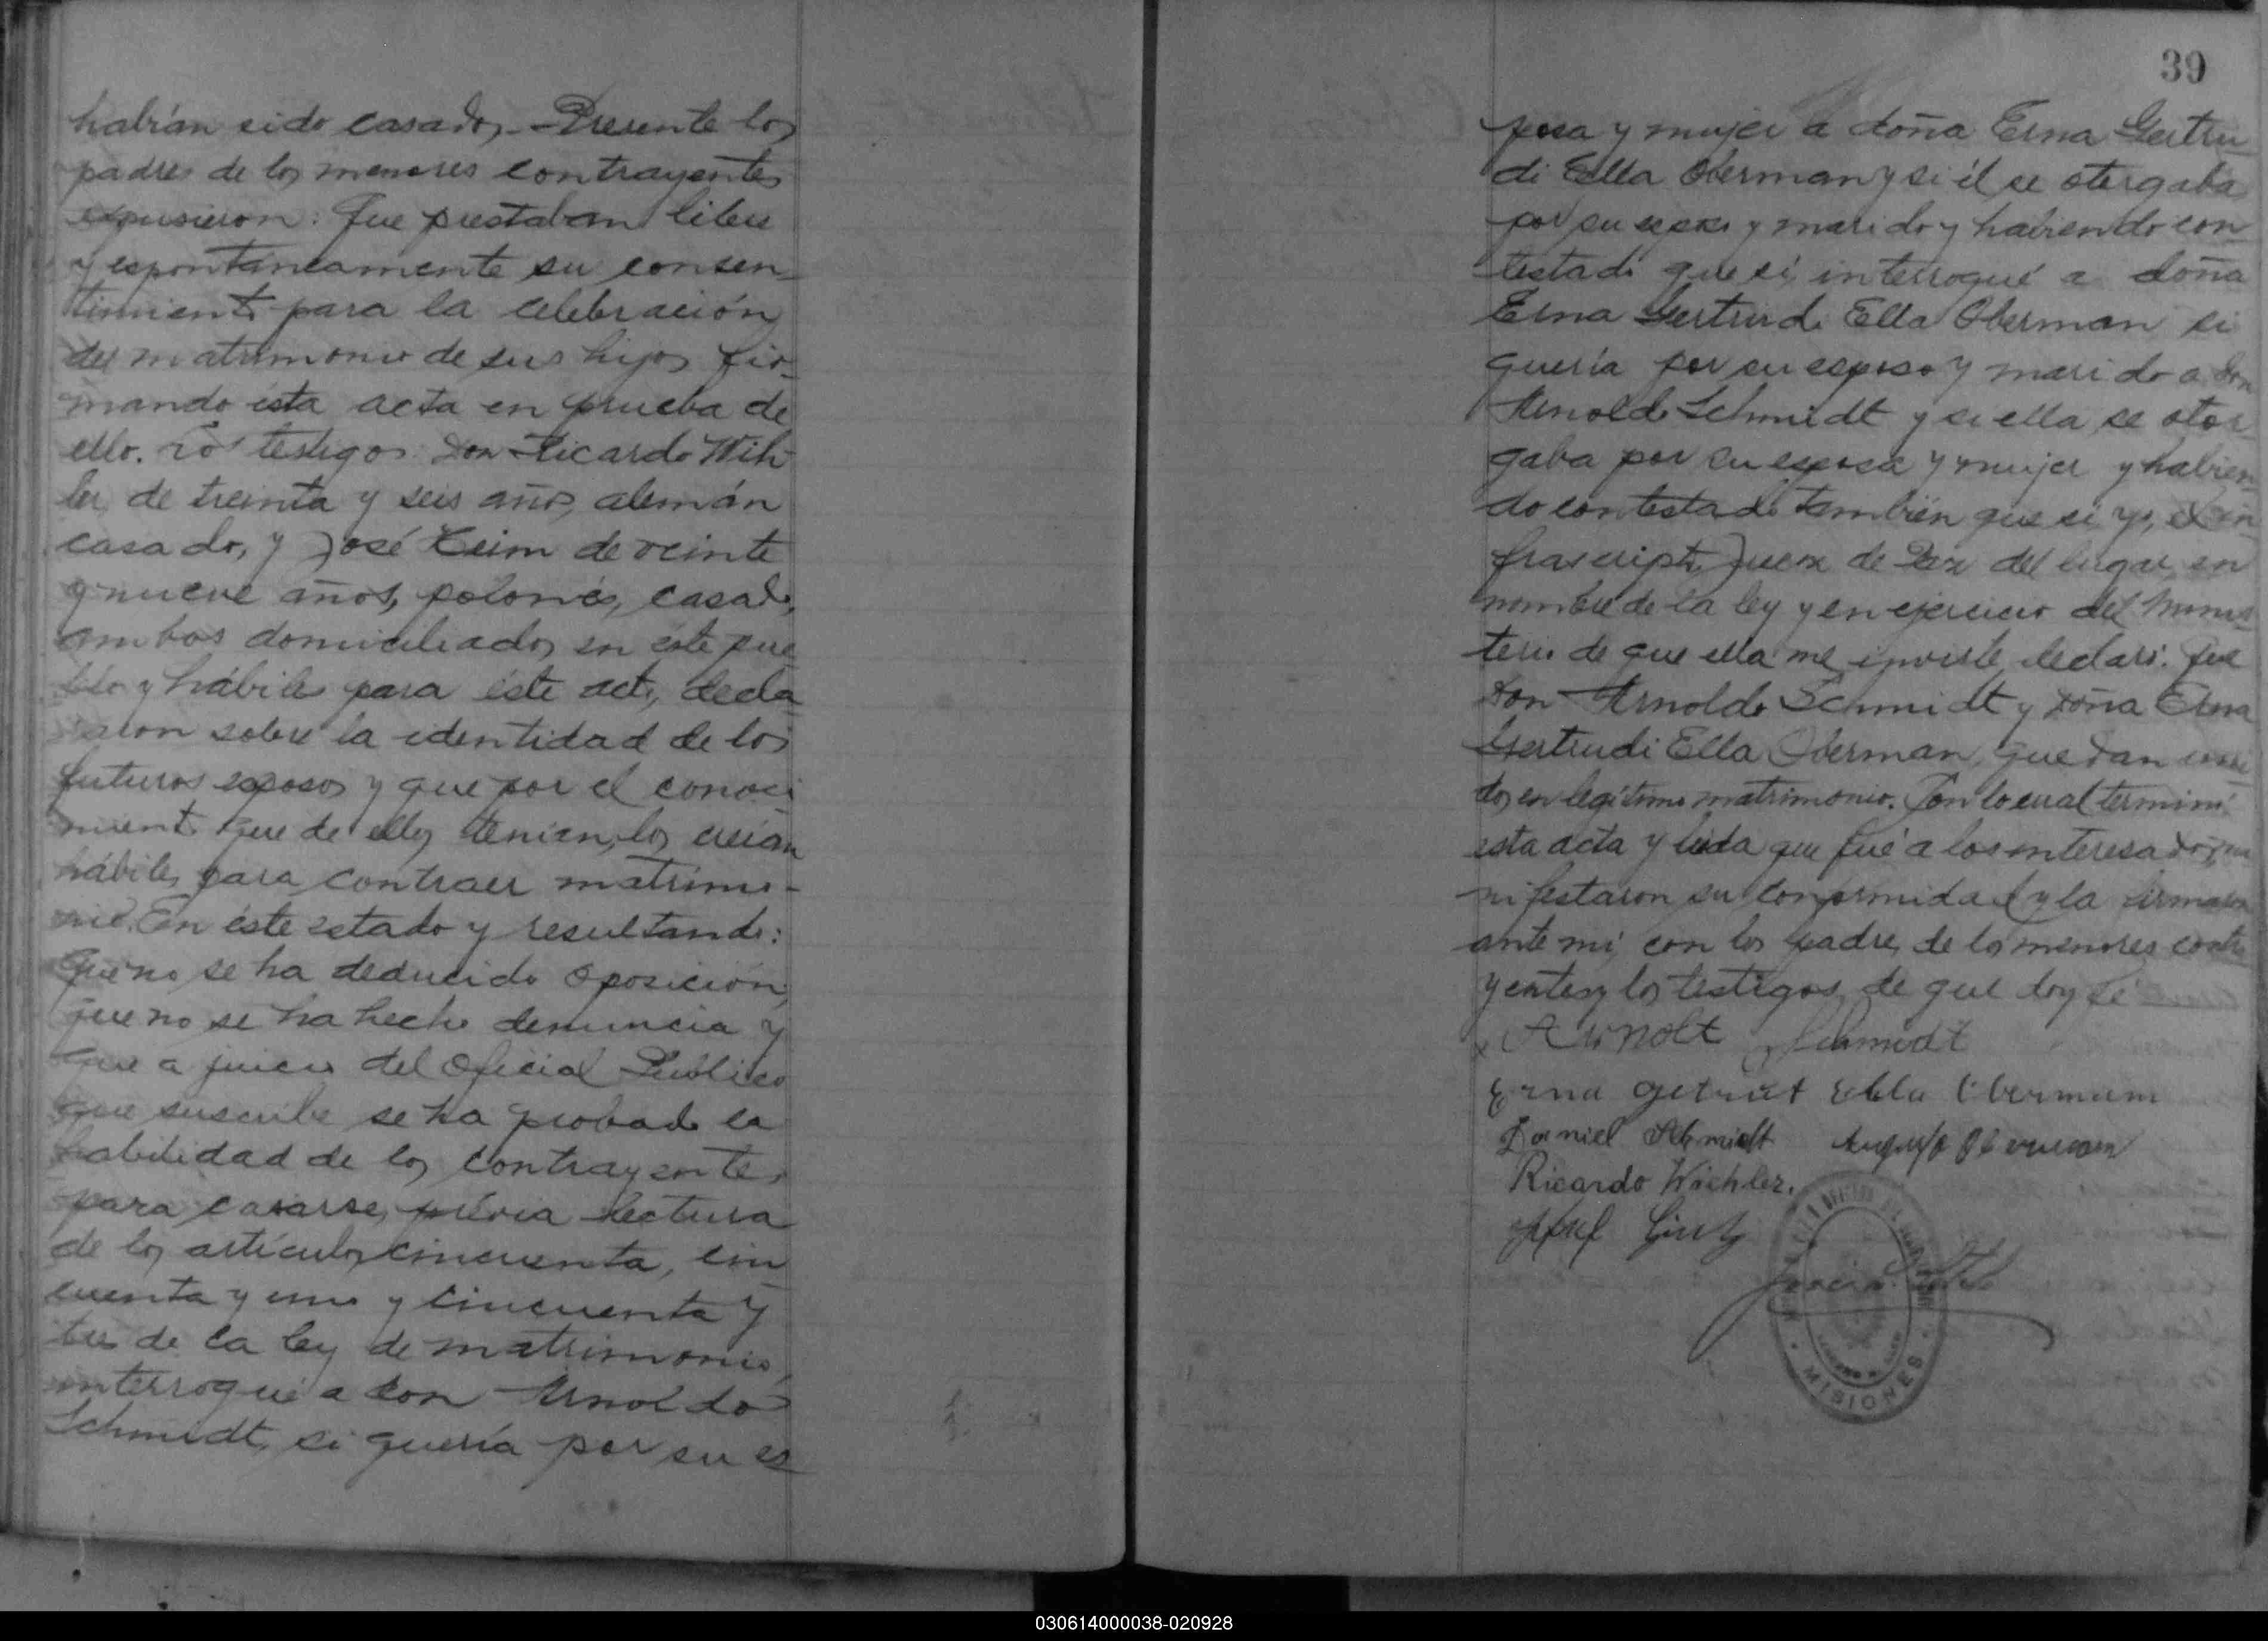 habían sido casados. - Presente los
padres de los menores contrayentes
expusieron: Que prestaban libre
y espontáneamente su consen-
timiento para la celebración
del matrimonio de sus hijos fir-
mando ésta acta en prueba de
ello. Los testigos Don Ricardo Wih
ler, de treinta y seis años, alemán
casado, y José de veinte
y nueve años, polonés, casado,
ambos domiciliados en este pue
blo y hábiles para éste acto, decla
raron sobre la identidad de los
futuros esposos y que por el conoci
miento que de ellos tenían, los creían
hábiles para contraer matrimo-
nio. En éste estado y resultando:
Que no se ha deducido oposición,
que no se ha hecho denuncia y
que a juicio del Oficial Público
que suscribe se ha probado la
habilidad de los contrayentes
para casarse, prévia lectura
de los artículos cincuenta, cin
cuenta y uno y cincuenta y
tres de la ley de matrimonio,
interrogué a don Arnoldo
Schmidt, si quería por su es
39
posa y mujer a doña Erna Gertru
di Ella Oberman y si él se otorgaba
por su esposo y marido y habiendo con
testado que sí, interrogué a doña
Erna Gertrudi Ella Oberman si
quería por su esposo y marido a don
Arnoldo Schmidt y si ella se otor
gaba por su esposa y mujer y habien
do contestado también que sí yo, el in
frascripto Juez de Paz del lugar, en
nombre de la ley y en ejercicio del minis
terio de que ella me inviste, declaro: Que
Don Arnoldo Schmidt y Doña Erna
Gertrudi Ella Oberman, quedan
dos en legítimo matrimonio. Con lo cual terminó
esta acta y leída que fué a los interesados, ma
nifestaron su conformidad y la firmaron
ante mí, con los padres de los menores contra
yentes y los testigos, de que doy fé
Arnolt Schmidt
Erna Getrut Ella Obermann
Daniel Schmidt Augusto Obermann
Ricardo Wichler.
MISIONES
030614000038-020928